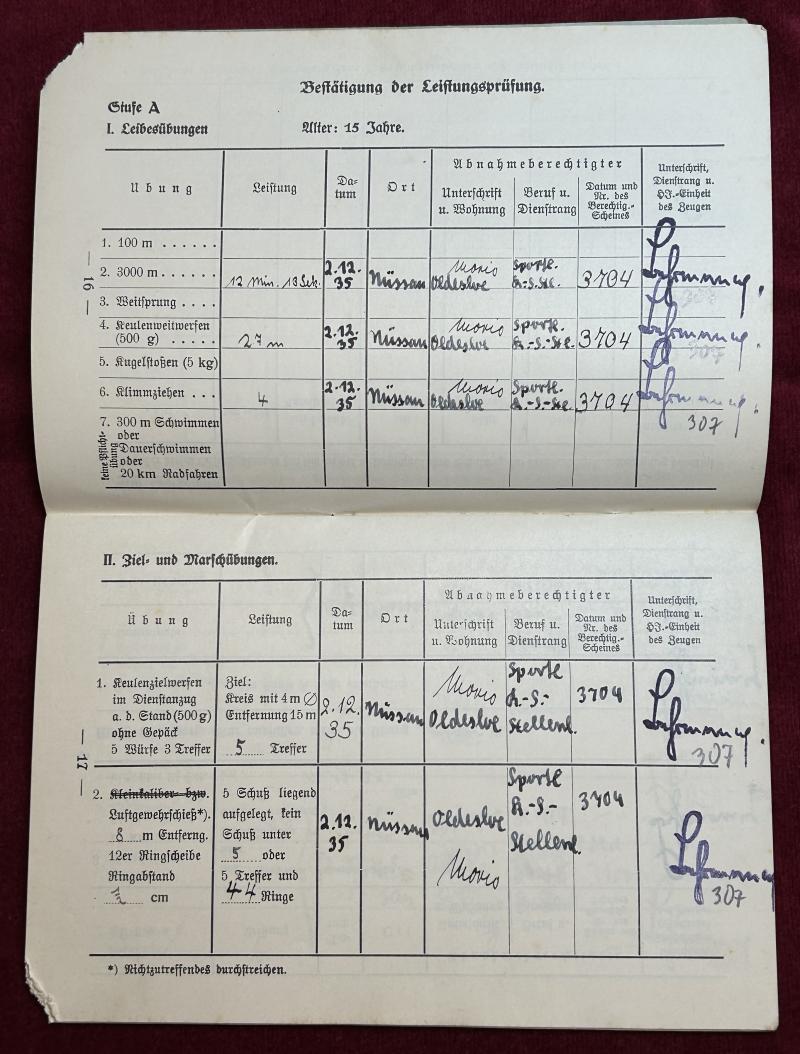 Bestätigung der Leistungsprüfung.
Stufe A
I. Leibesübungen Alter: 15 Jahre.
Übung Leistung Da-tum Ort Abnahmeberechtigter Unterschrift u. Wohnung Beruf u. Dienstrang Datum und Nr. des Berechtig.-Scheines Unterschrift, Dienstrang u. HJ.-Einheit des Zeugen
1. 100 m . . . . . .
2. 3000 m . . . . . 12 Min. 18 Sek. 2.12. 35 Nüssau Oldesloe Sportl. 3704
3. Weitsprung . . . .
4. Keulenweitwerfen
(500 g) . . . . . 27 m 2.12. 35 Nüssau Oldesloe Sportl. 3704
307
5. Kugelstoßen (5 kg)
6. Klimmziehen . . . 4 2.12. 35 Nüssau Oldesloe Sportl. 3704
307
7. 300 m Schwimmen
oder
Dauerschwimmen
oder
20 km Radfahren
keine Pflicht-
übung
— 16 —
II. Ziel- und Marschübungen.
Übung Leistung Da-tum Ort Abnahmeberechtigter Unterschrift u. Wohnung Beruf u. Dienstrang Datum und Nr. des Berechtig.-Scheines Unterschrift, Dienstrang u. HJ.-Einheit des Zeugen
1. Keulenzielwerfen
im Dienstanzug
a. d. Stand (500 g)
ohne Gepäck
5 Würfe 3 Treffer
Ziel:
Kreis mit 4 m ∅
Entfernung 15 m
5 Treffer
2.12.
35
Nüssau
Oldesloe
Sportl.
K.-S.-
Stellenl.
3704
307
2. Kleinkaliber- bzw.
Luftgewehrschieß*).
8 m Entferng.
12er Ringscheibe
Ringabstand
½ cm
5 Schuß liegend
aufgelegt, kein
Schuß unter
5 oder
5 Treffer und
44 Ringe
2.12.
35
Nüssau
Oldesloe
Sportl.
K.-S.-
Stellenl.
3704
307
*) Nichtzutreffendes durchstreichen.
— 17 —